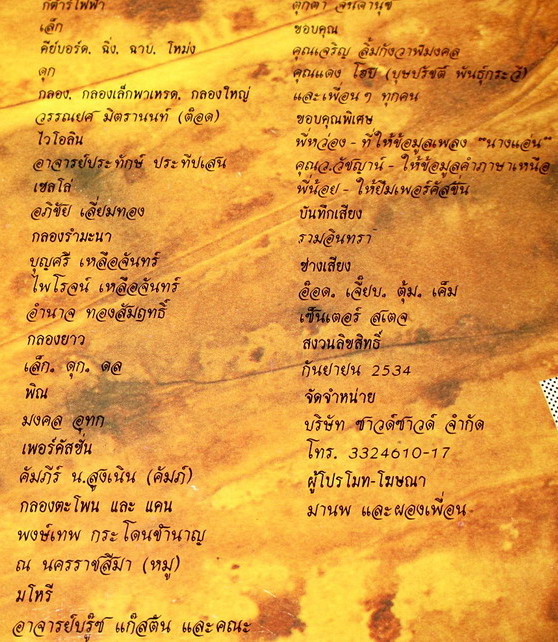 กีตาร์ไฟฟ้า
เล็ก
คีย์บอร์ด, ฉิ่ง, ฉาบ, โหม่ง
ดุก
กลอง, กลองเล็กพาเหรด, กลองใหญ่
วรรณยศ มิตรานนท์ (ต๊อด)
ไวโอลิน
อาจารย์ประทักษ์ ประทีปเสน
เชลโล่
อภิชัย เลี่ยมทอง
กลองรำมะนา
บุญศรี เหลือจันทร์
ไพโรจน์ เหลือจันทร์
อำนาจ ทองสัมฤทธิ์
กลองยาว
เล็ก, ดุก, ดล
พิณ
มงคล อุทก
เพอร์คัสชั่น
คัมภีร์ น.สูงเนิน (คัมภ์)
กลองตะโพน และ แคน
พงษ์เทพ กระโดนชำนาญ
ณ นครราชสีมา (หมู)
มโหรี
อาจารย์บรู๊ซ แก๊สตัน และคณะ
ตุ๊กตา จินดานุช
ขอบคุณ
คุณเจริญ ลิ้มกังวาฬมงคล
คุณแดง โฮป (บุษปรัชต์ พันธุ์กระวี)
และเพื่อนๆ ทุกคน
ขอบคุณพิเศษ
พี่หว่อง - ที่ให้ข้อมูลเพลง "นางแอ่น"
คุณว.วัชญาน์ - ให้ข้อมูลคำภาษาเหนือ
พี่น้อย - ให้ยืมเพอร์คัสชั่น
บันทึกเสียง
รามอินทรา
ช่างเสียง
อ๊อด, เจี๊ยบ, ตุ้ม, เค็ม
เซ็นเตอร์ สเตจ
สงวนลิขสิทธิ์
กันยายน 2534
จัดจำหน่าย
บริษัท ซาวด์ซาวด์ จำกัด
โทร. 3324610-17
ผู้โปรโมท-โฆษณา
มานพ และผองเพื่อน